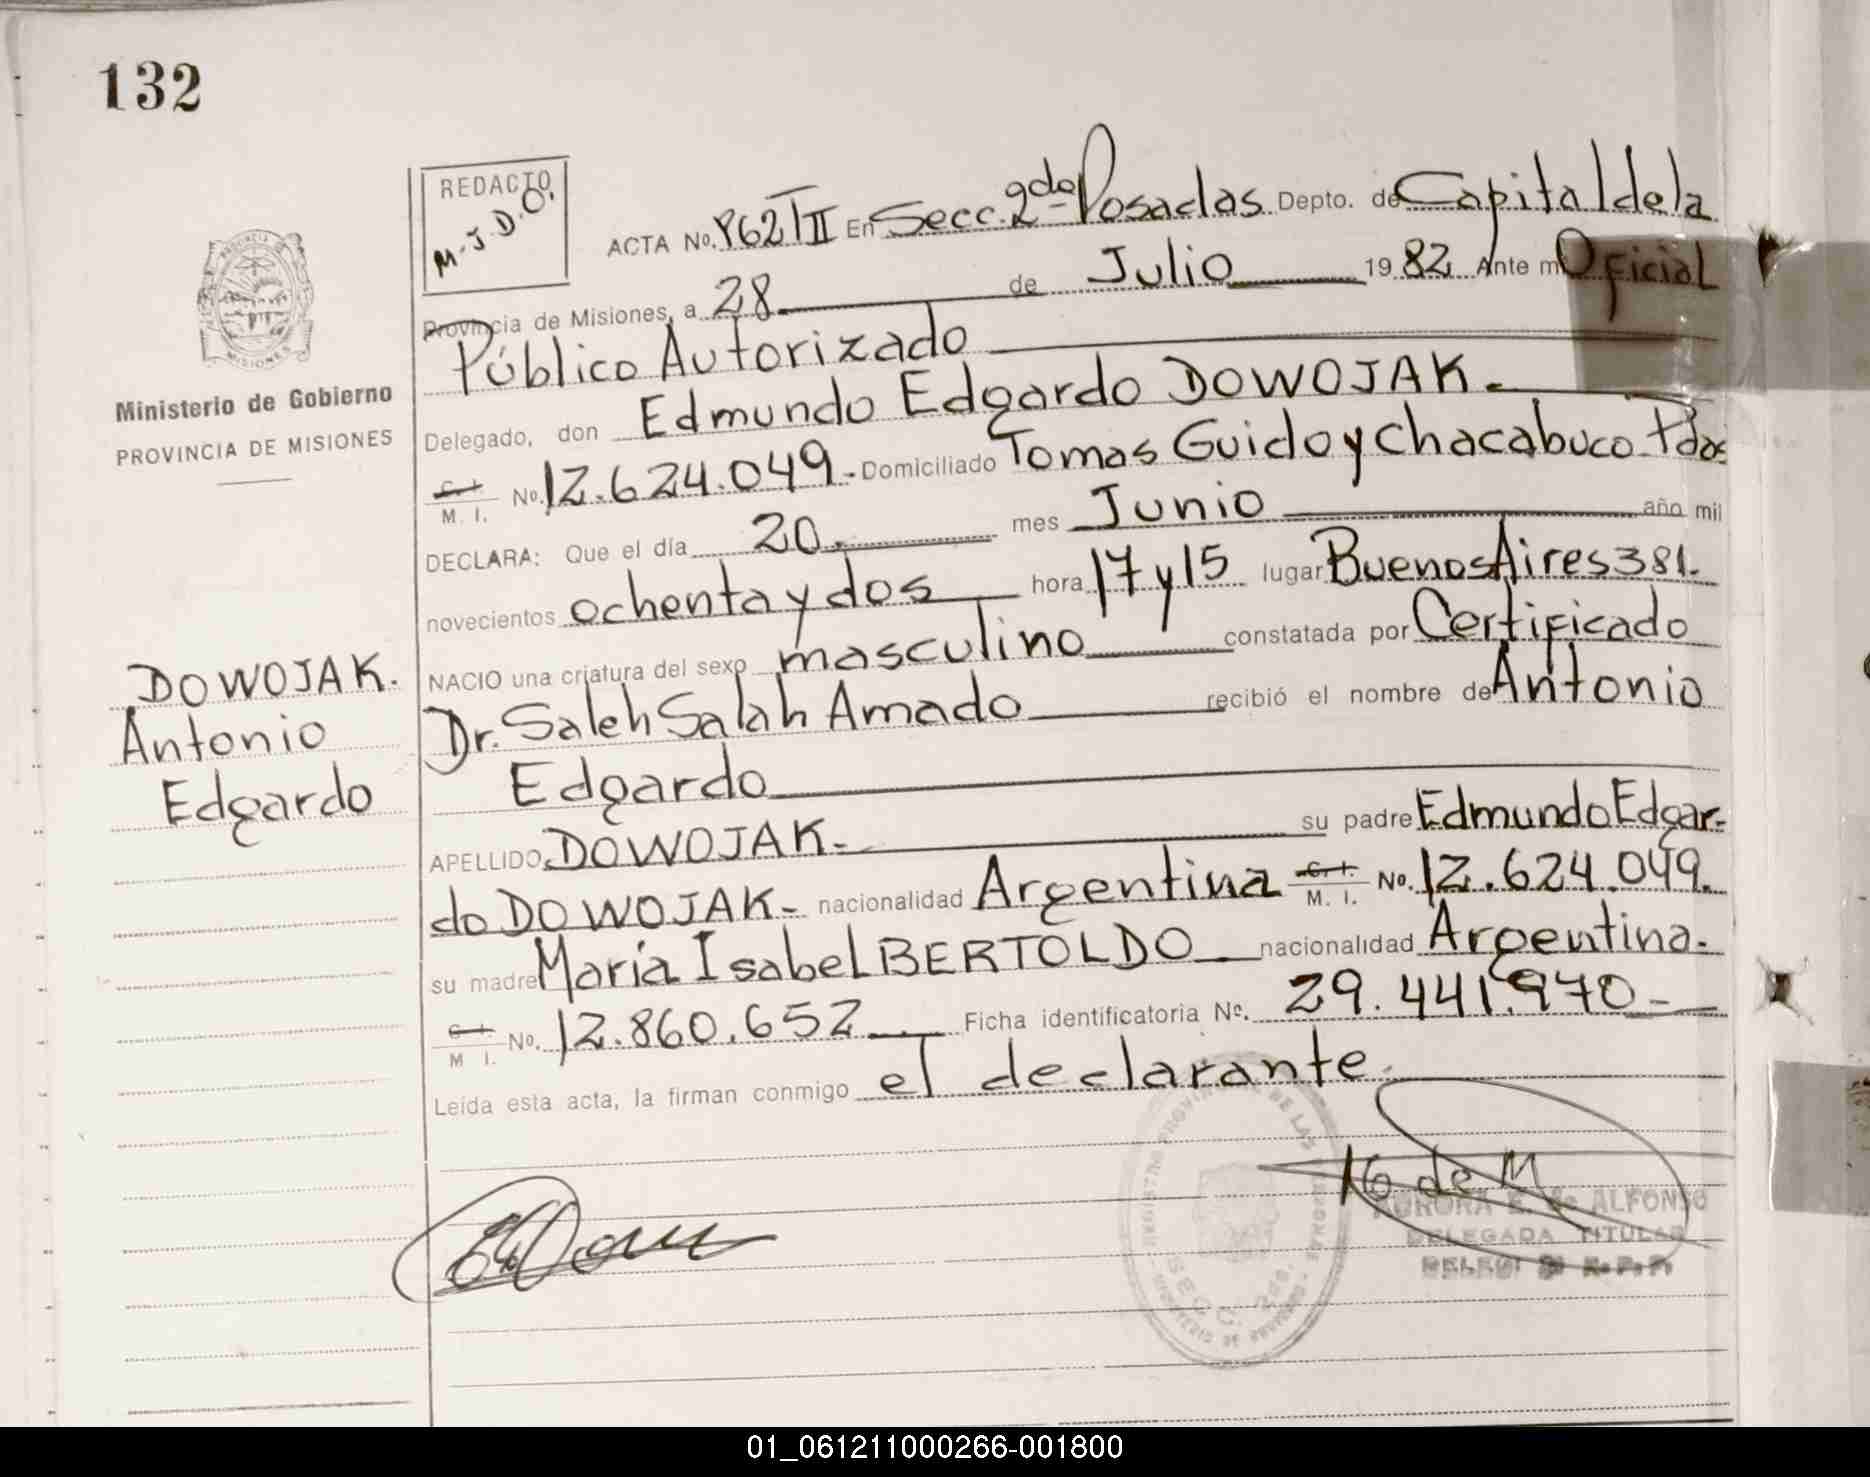 132
REDACTO
M.J.D.O.
ACTA No. 862 T II En Secc. 2da Posadas Depto. de Capital de la
Provincia de Misiones, a 28 de Julio 1982 Ante mi Oficial
Público Autorizado
Ministerio de Gobierno
PROVINCIA DE MISIONES
Delegado, don Edmundo Edgardo DOWOJAK.
C. I.
M. I. No. 12.624.049. Domiciliado Tomas Guido y Chacabuco. Pdas
DECLARA: Que el día 20. mes Junio año mil
novecientos ochenta y dos hora 17 y 15 lugar Buenos Aires 381.
NACIO una criatura del sexo masculino constatada por Certificado
Dr. Saleh Salah Amado recibió el nombre de Antonio
Edgardo
DOWOJAK.
Antonio
Edgardo
APELLIDO DOWOJAK. su padre Edmundo Edgar-
do DOWOJAK. nacionalidad Argentina C. I. M. I. No. 12.624.049.
su madre María Isabel BERTOLDO nacionalidad Argentina.
C. I. M I. No. 12.860.652 Ficha identificatoria No. 29.441.970
Leída esta acta, la firman conmigo el declarante.
REGISTRO PROVINCIAL DE LAS
SECC. 2da.
MINISTERIO DE
AURORA E. de ALFONSO
DELEGADA TITULAR
01_061211000266-001800